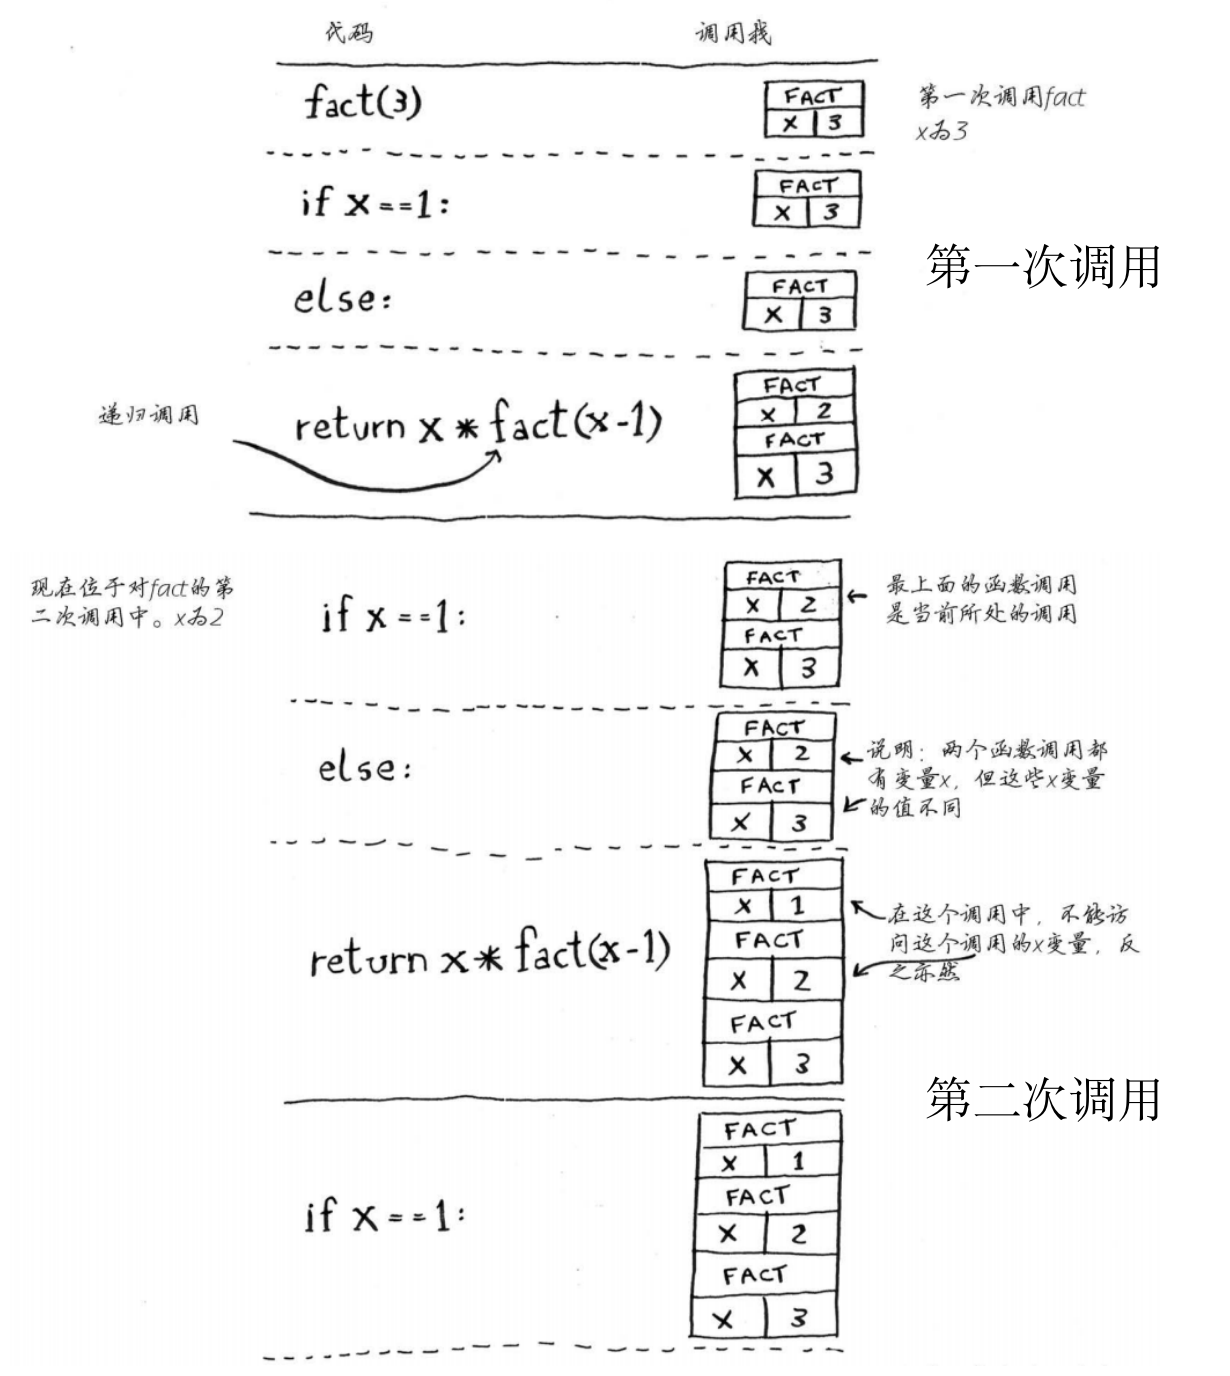 代码 调用栈
fact(3)
FACT
X 3
第一次调用fact
x为3
if x==1:
FACT
X 3
第一次调用
else:
FACT
X 3
递归调用
return x * fact(x-1)
FACT
X 2
FACT
X 3
现在位于对fact的第
二次调用中。x为2
if x==1:
FACT
X 2
FACT
X 3
最上面的函数调用
是当前所处的调用
else:
FACT
X 2
FACT
X 3
说明：两个函数调用都
有变量x，但这些x变量
的值不同
return x * fact(x-1)
FACT
X 1
FACT
X 2
FACT
X 3
在这个调用中，不能访
问这个调用的x变量，反
之亦然
第二次调用
if x==1:
FACT
X 1
FACT
X 2
FACT
X 3